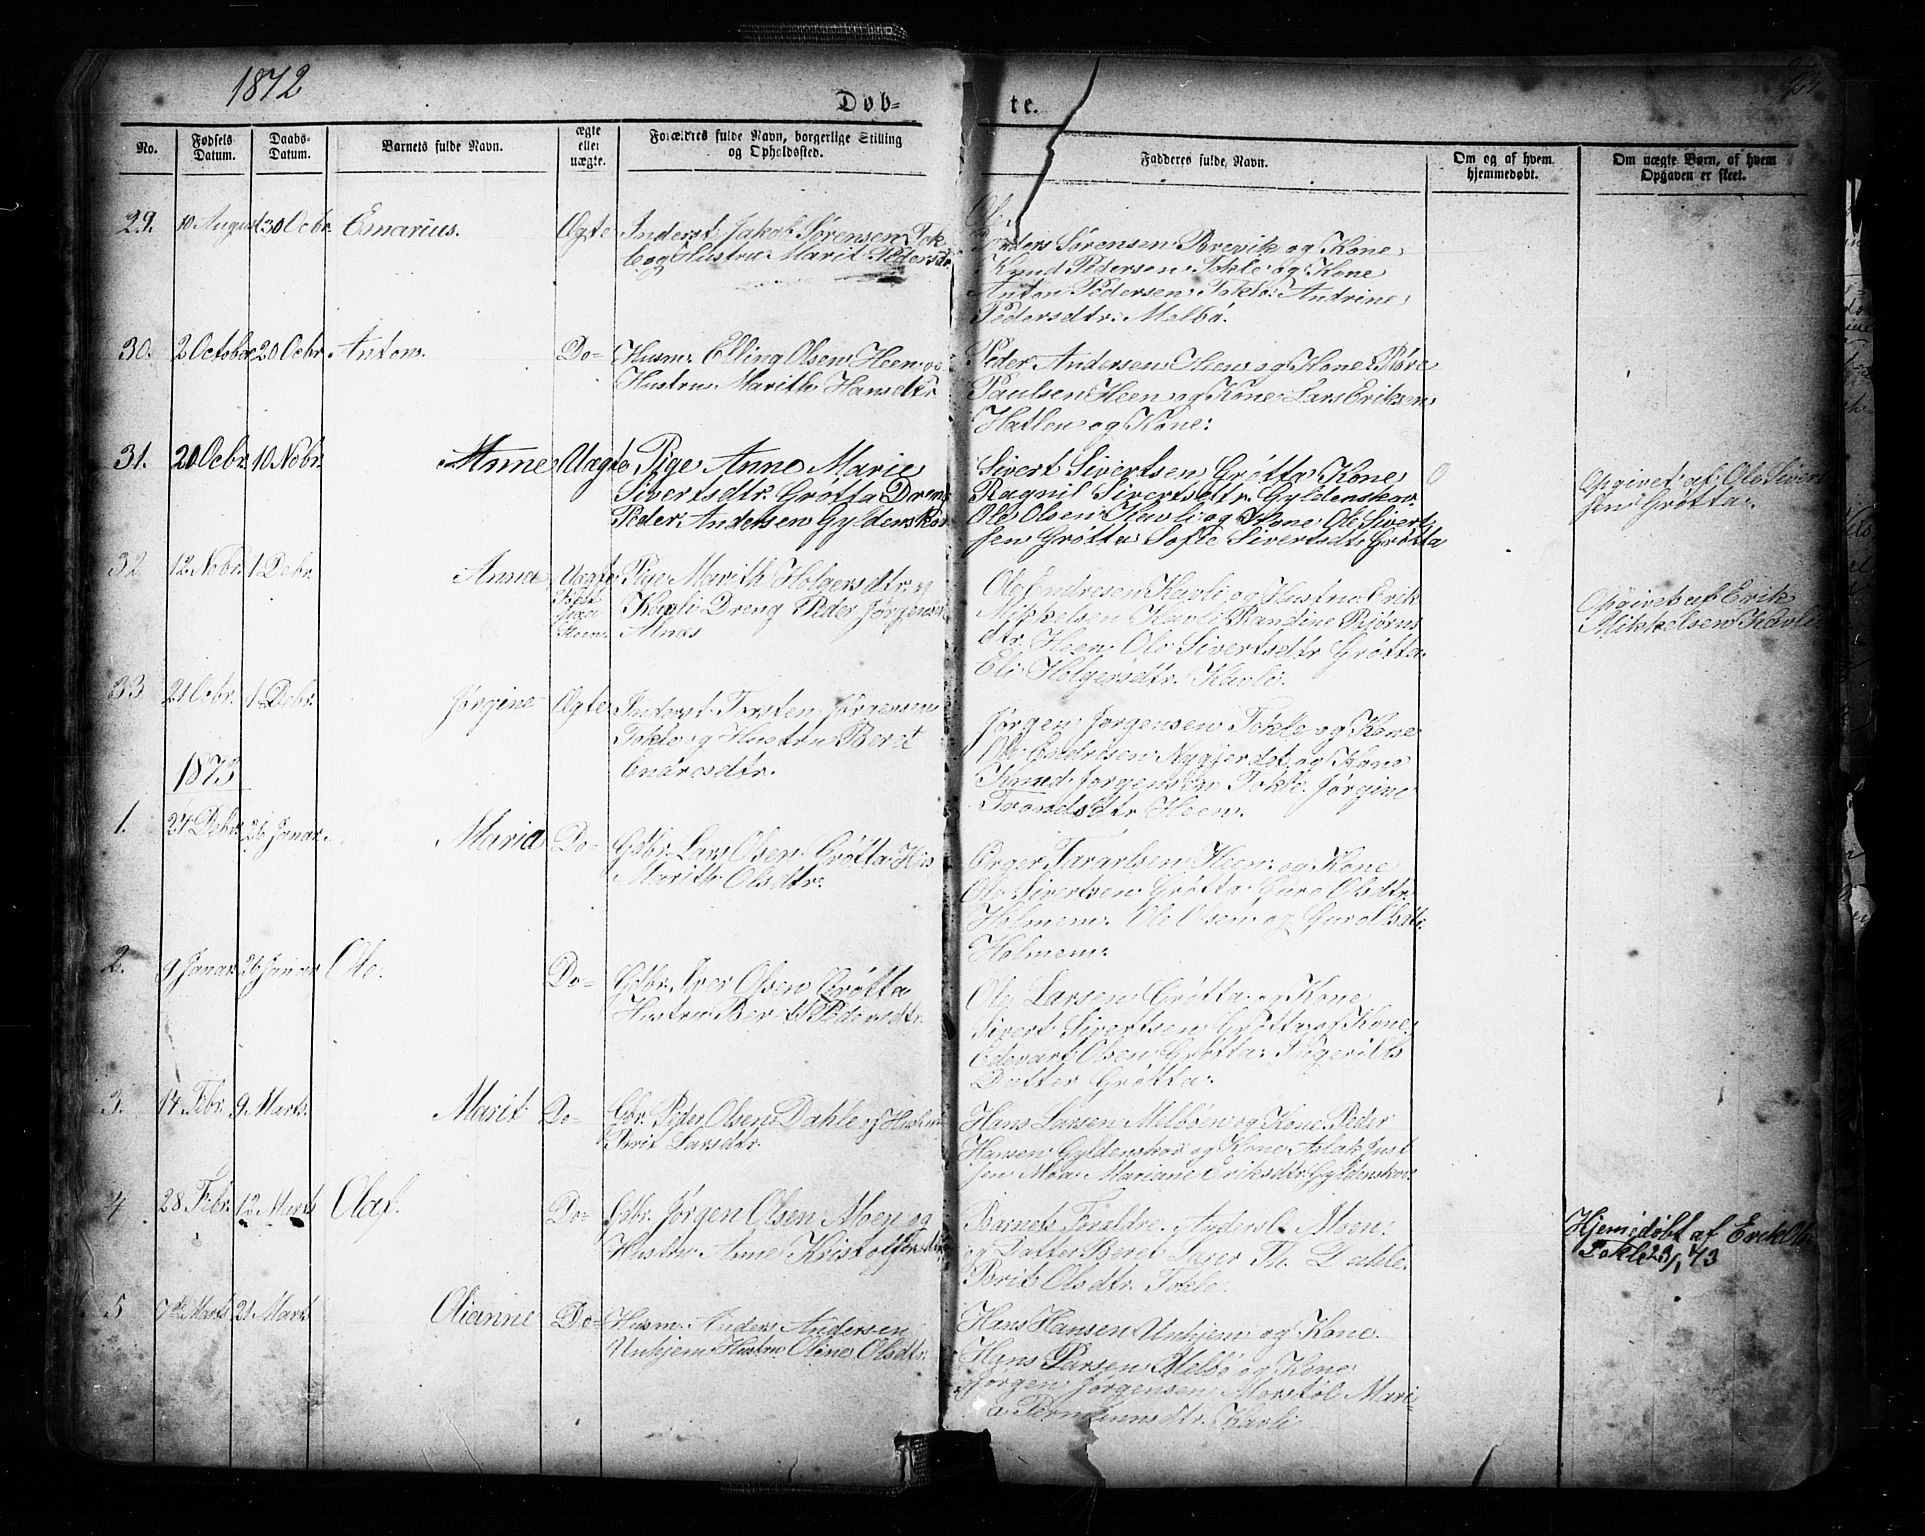 1872
Døb-
te.
No.
Fødsels Datum.
Daabs-Datum.
Barnets fulde Navn.
ægte eller uægte.
Forældres fulde Navn, borgerlige Stilling og Opholdssted.
Fadderes fulde Navn.
Om og af hvem hjemmedøbt.
Om uægte Børn, af hvem Opgaven er skeet.
29. 10 August 30 Ocbr. Emarius. Ægte Inderst Jakob Sørensen Tok-
le og Hustru Marit Pedersdr
Ole
Anders Sørensen Brevik og Kone
Knud Pedersen Tokle og Kone
Anton Pedersen Tokle: Andrine
Pedersdtr. Melbø.
30. 2 October 20 Ocbr. Anton. Do- Husm. Elling Olsen Heen og
Hustru Marith Hansdtr
Peder Andersen Heen og Kone
Paulsen Heen og Kone Lars Eriksen
Hatlen og Kone:
31. 20 Ocbr. 10 Nobr. Anne Uægte Pige Anne Marie
Sivertsdtr. Grøtta Dreng
Peder Andersen Gyldenskov
Sivert Sivertsen Grøtta Kone
Ragnil Sivertsdtr. Gyldenskov
Ole Olsen Kavli og Kone Ole Sivert
sen Grøtta Sofie Sivertsdtr Grøtta
Opgivet af Ole Sivert
sen Grøtta.
32 12 Nobr. 1 Debr. Anna Uægte Pige Marith Holgersdtr.
Kavli Dreng Peder Jørgensen
Alnæs
Ole Endresen Kavli og Hustru Erik
Mikkelsen Kavli Randine Bjørns
dtr. Heen Ole Sivertsdtr Grøtta
Eli Holgersdtr. Kavli.
Opgivet af Erik
Mikkelsen Kavli
33 21 Ocbr. 1 Debr. Jørgine Ægte Inderst Torsten Jørgensen
Tokle og Hustru Beret
Endresdtr.
Jørgen Jørgensen Tokle og Kone
Ole Endresen Nygjerdet og Kone
Knud Jørgensen Tokle. Jørgine
Trondsdtr Heen.
1873
1. 24 Debr. 26 Januar Maria Do- Gdbr. Lars Olsen Grøtta Hus
Marith Olsdtr.
Heen og Kone
Ole Sivertsen Grøtta Guro Olsdtr.
Holmem. Ole Olsen og Guro Olsdtr.
Holmem.
2. 9 Januar 26 Januar Ole. Do- Gdbr. Iver Olsen Grøtta
Hustru Berit Pedersdtr.
Ole Larsen Grøtta og Kone
Sivert Sivertsen Grøtta og Kone
Edevart Olsen Grøtta. Ingeri Ols
Datter Grøtta.
3. 14 Febr. 9 Marts. Marit Do- Gbr. Peder Olsen Dahle og Hustru
Brit Larsdtr.
Hans Larsen Melbøen og Kone Peder
Hansen Gyldenskov og Kone Aslak Just
sen Moa Mariane Eriksdtr. Gyldenskov.
4 28 Febr. 12 Marts Olaf. Do- Gdbr. Jørgen Olsen Moen og
Hustru Anne Kristofersdtr
Barnets Foreldre. Anders L. Moen.
og Datter Beret Lærer Th. Dahle.
Brit Olsdtr. Tokle.
Hjemmedøbt af Erik
Tokle 23/1 73
5 7de Marts 21 Marts Olianne Do- Husm. Anders Andersen
Unhjem Hustru Oline Olsdtr.
Hans Hansen Unhjem og Kone.
Hans Larsen Melbø og Kone
Jørgen Jørgensen Morstøl Mari-
a Kavli